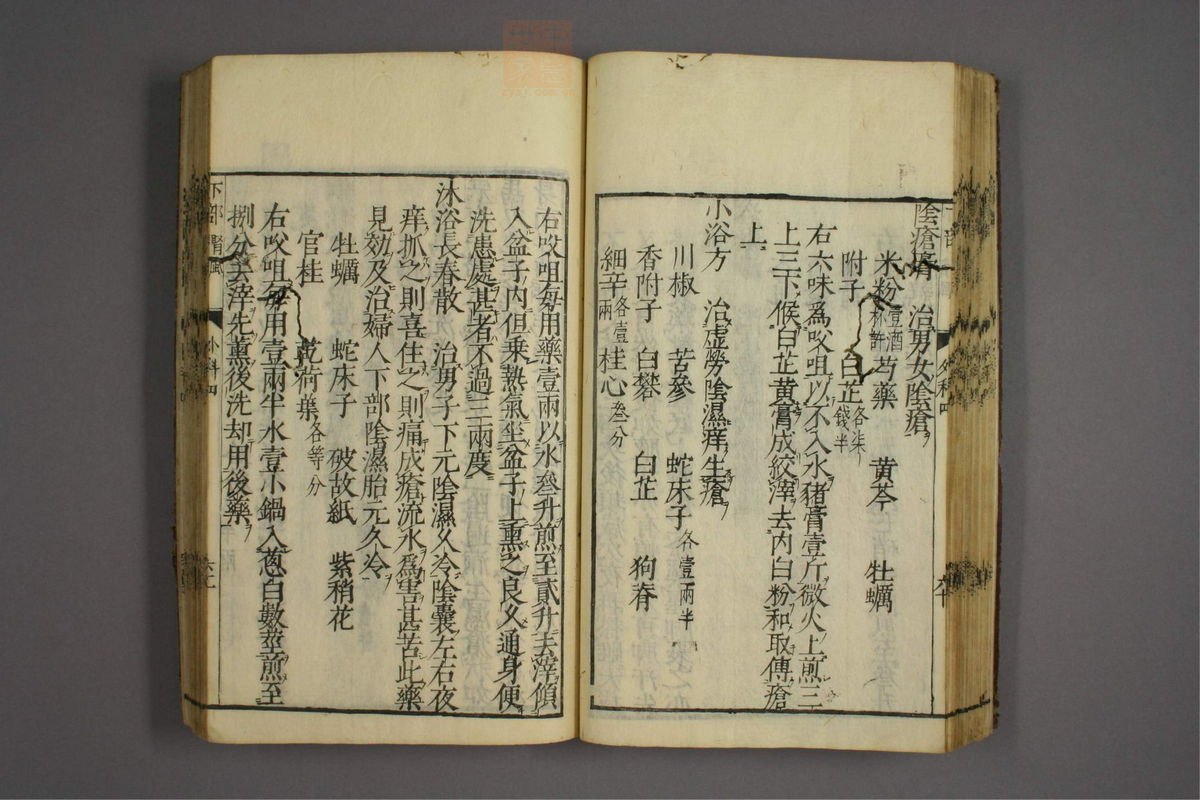 陰瘡膏　治男女陰瘡
米粉壹酒杯許　芍藥　黃芩　牡蠣
附子　白芷各柒錢半
右六味爲㕮咀以不入水豬膏壹斤微火上煎三
上三下候白芷黃膏成絞滓去内白粉和取傅瘡
上
小浴方　治虛勞陰濕痒生瘡
川椒　苦參　蛇床子各壹兩半
香附子　白礬　白芷　狗脊
細辛各壹兩　桂心叁分
右㕮咀每用藥壹兩以水叄升煎至貳升去滓傾
入盆子内但乗熱氣坐盆子上熏之良久通身便
洗患處甚者不過三兩度
沐浴長春散　治男子下元陰濕久冷陰囊左右夜
痒抓之則喜住之則痛成瘡流水爲害甚苦此藥
見効及治婦人下部陰濕胎元久冷
牡蠣　蛇床子　破故紙　紫稍花
官桂　乾荷葉各等分
右㕮咀每用壹兩半水壹小鍋入蔥白數莖煎至
捌分去滓先薰後洗却用後藥
下部　腎風　外科四